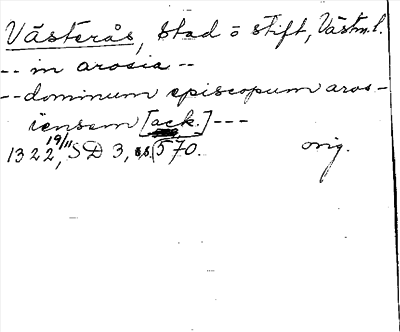 Västerås, Stad o stift, Västm.l.
-- in arosia --
-- dominum episcopum aros-
iensem [ack.] ---
1322 19/11, SD 3, s. 570. orig.